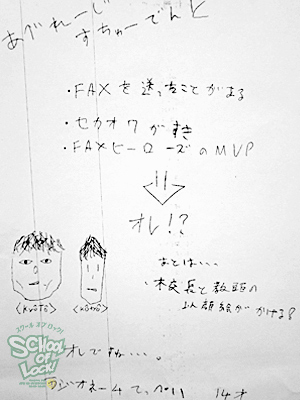 あべれーじ
すちゅーでんと
・FAXを送ったことがある
・セカオワがすき
・FAXヒーローズのMVP
オレ!?
あとは・・・
・校長と教頭の
似顔絵がかける?
<kyoto>
スクール オブ ロック!
SCHOOL
OF
LOCK!
オレですね・・・。
ラジオネーム てっぺい 14才